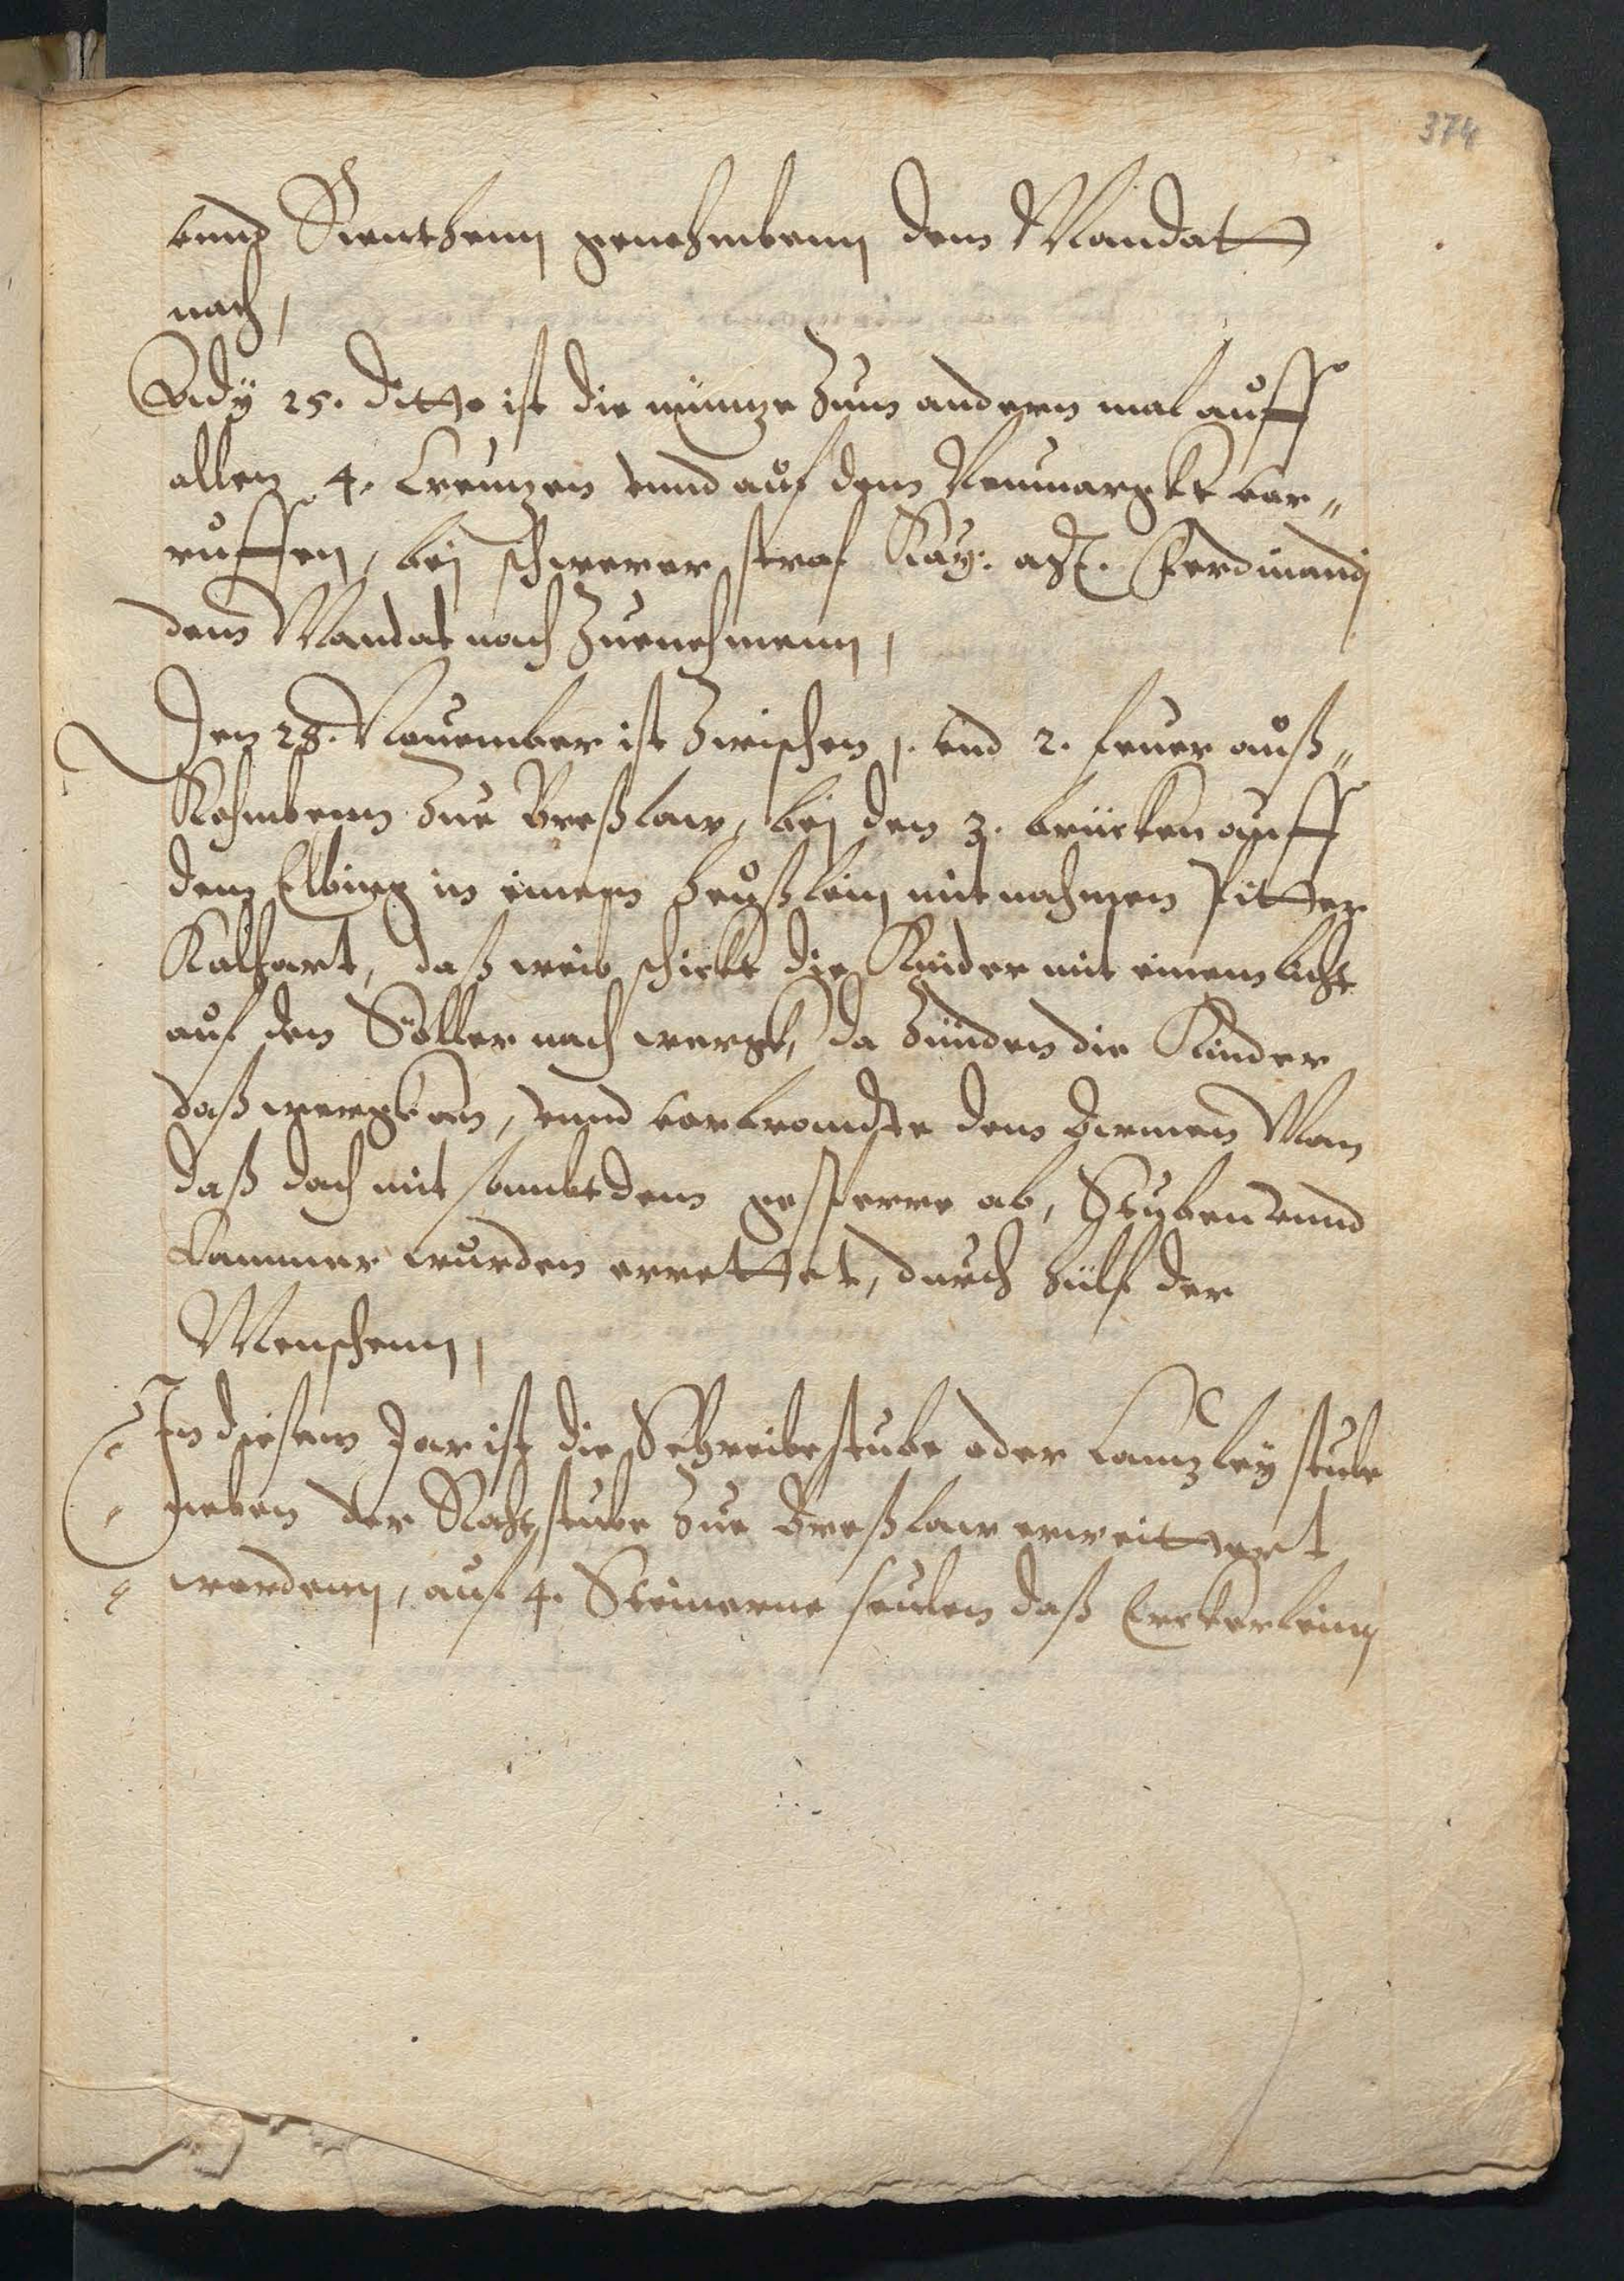 374
vnnd Renthenn genehmbenn dem Mandatt
nach,
Ady 25. ditto ist die müntze zum andern mal auff
allen 4. Creutzen vnnd auf dem Neumargkt vor„
ruffen, bej schwerer straf Kay: Ferdinandj
dem Mandat nach zuenehmenn,
Den 28. Nouember ist zwischen 1. vnd 2. feuer auß„
Kohmbenn zue Breßlaw, bej den 3. brücken auff
dem Elbing in einem heußlein mit nahmen Pitter
Kalhart, daß weib schickt die Kinder mit einem licht
auf den Söller nach wergk, da zünden die Kinder
daß wergk an, vnnd vorbrandte dem armen Man
daß dach mit sambt dem gesperre ab, Stuben vnnd
Cammer wurden errettet, durch hülf der
Menschenn,
In diesem Jar ist die Schreibestube oder Cantzley stube
neben der Rathstube zue Breßlaw erweittert
wordenn, auf 4. Steinerne seulen daß Erckerlein